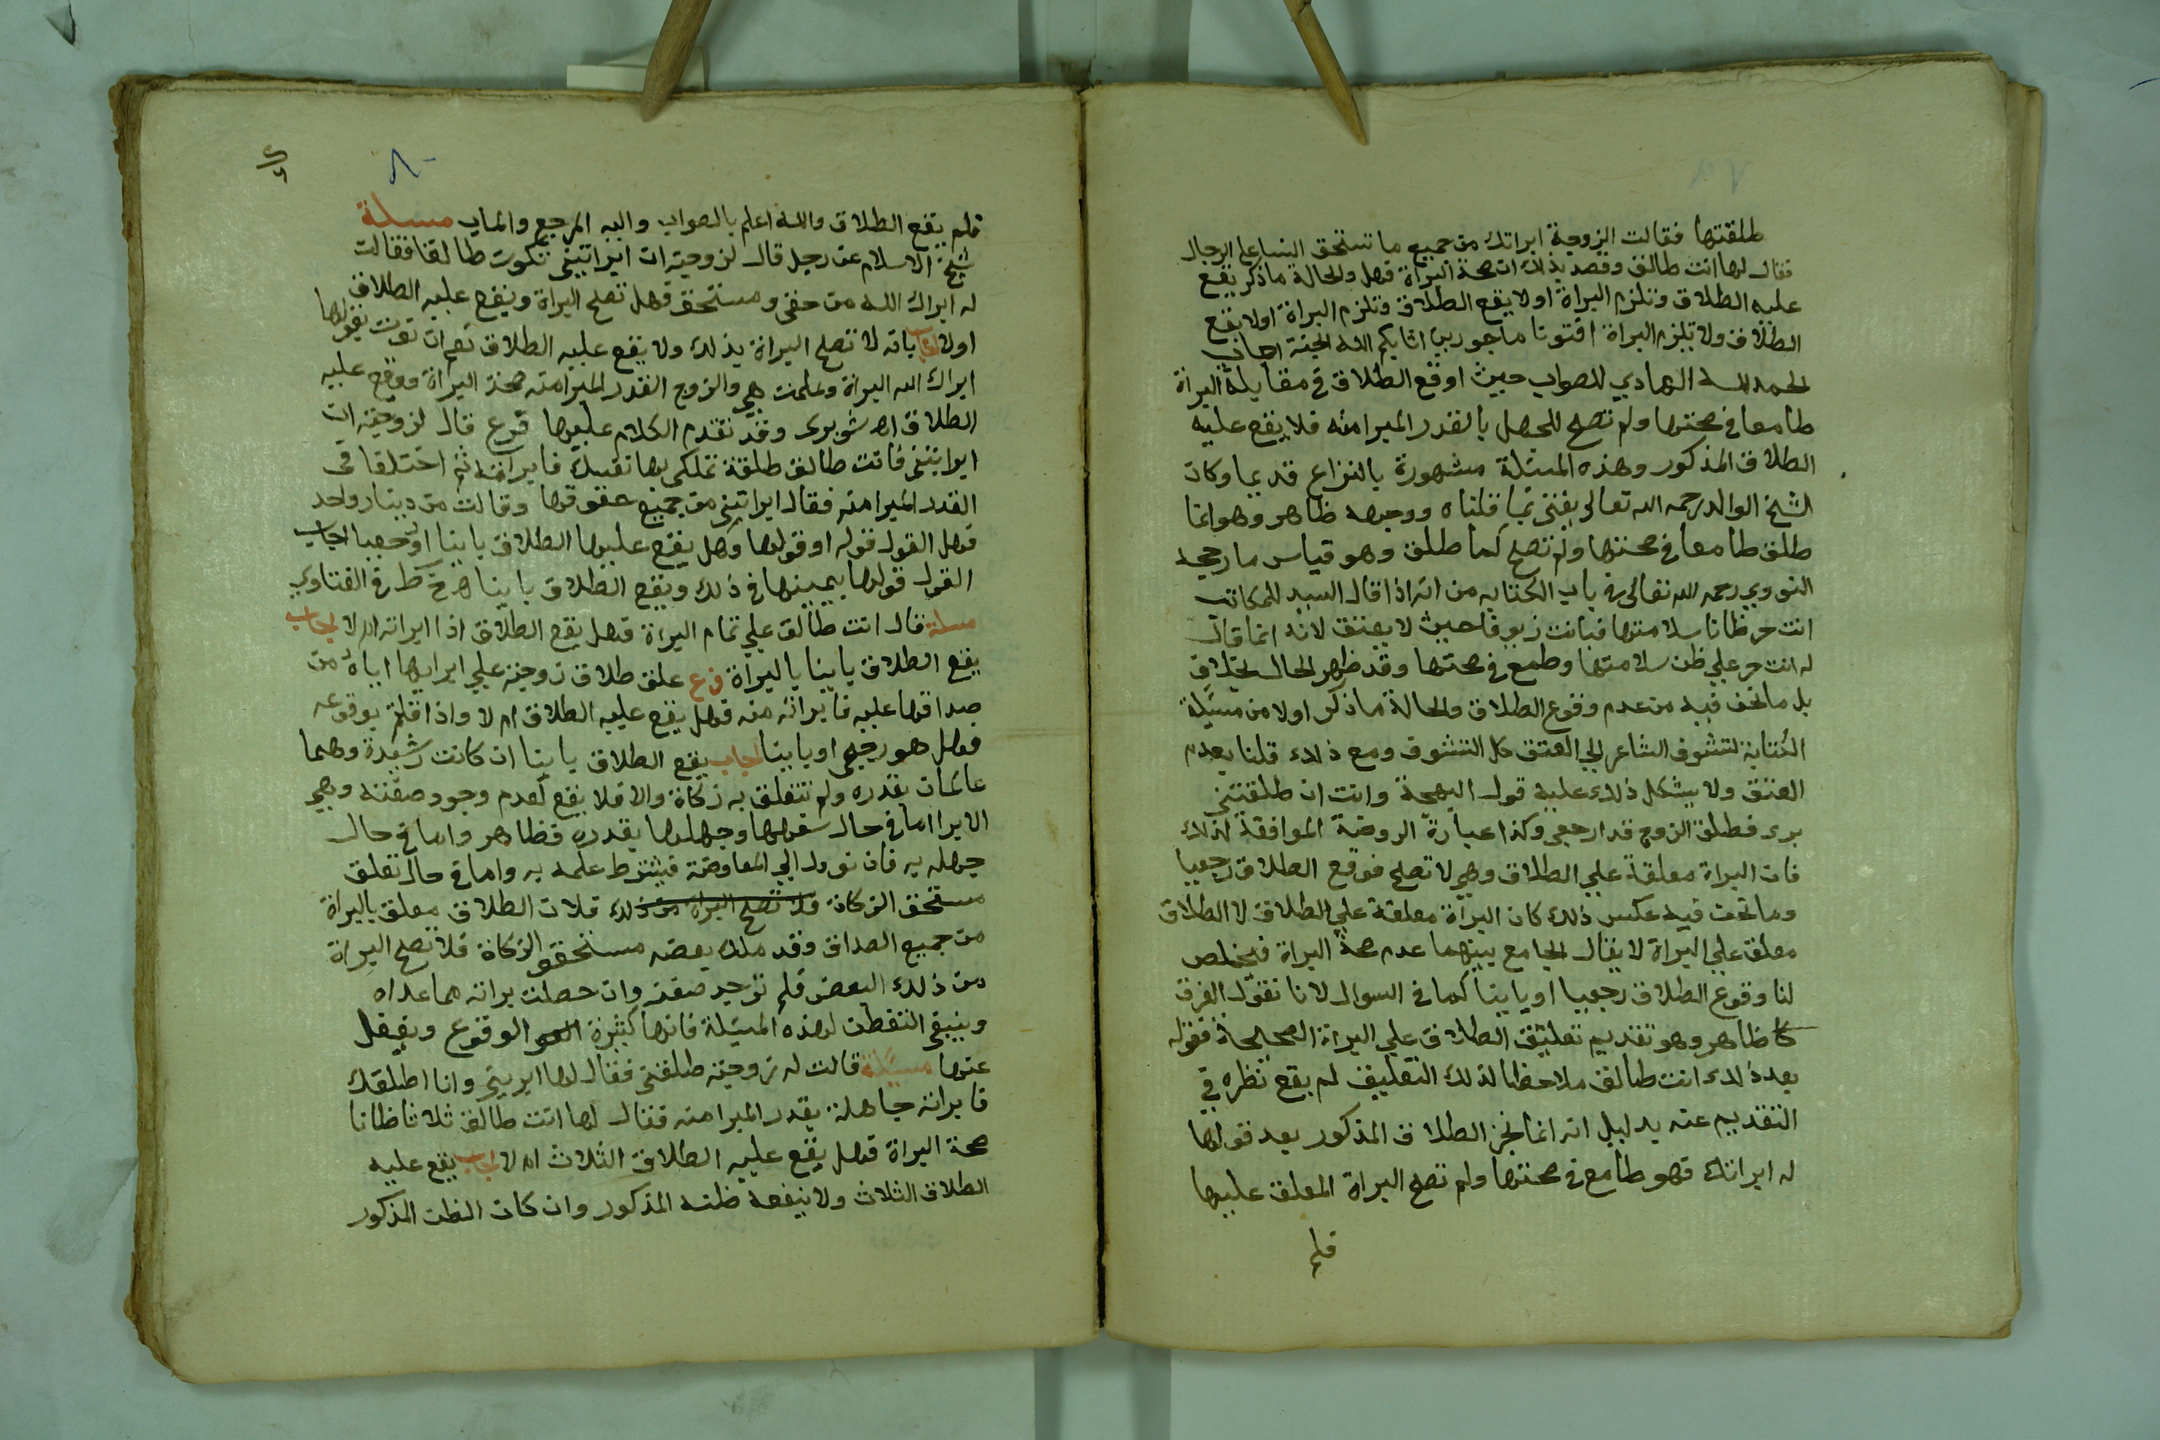 طلقتها فقالت الزوجة ابراتك من جميع ما تستحق النسا على الرجال
فقال لها انت طالق وقصد بذلك ان صحة البراة فهل والحالة ما ذكر يقع
عليه الطلاق وتلزم البراة او لا يقع الطلاق وتلزم البراة او لا يقع
الطلاق ولا تلزم البراة افتونا ماجورين اثابكم الله الجنة اجاب
الحمد لله الهادي للصواب حيث اوقع الطلاق في مقابلة البراة
طامعا في صحتها ولم تصح للجهل بالقدر المبرا منه فلا يقع عليه
الطلاق المذكور وهذه المسئلة مشهورة بالنزاع قديما وكان
الشيخ الوالد رحمه الله تعالى يفتي بما قلناه ووجهه ظاهر وهو انما
طلق طامعا في صحتها ولم تصح كما طلق وهو قياس ما رجحه
النووي رحمه الله تعالى في باب الكتابه من انه اذا قال السيد للمكاتب
انت حر ظانا سلامتها فبانت زيوفا حيث لا يعتق لانه انما قال
له انت حر على ظن سلامتها وطمع في صحتها وقد ظهر الحال بخلاف
بل ما نحن فيه من عدم وقوع الطلاق والحالة ما ذكر اولا من مسئلة
الكتابة لتشوف الشاعر الي العتق كل التشوف ومع ذلك قلنا بعدم
العتق ولا يشكل ذلك عليه قول البهجة وانت ان طلقتني
بري فطلق الزوج قد ارجعي وكذا عبارة الروضة الموافقة لذلك
فان البراة معلقة علي الطلاق وهي لا تصح فوقع الطلاق رجعيا
وما نحن فيه عكس ذلك كان البراة معلقة علي الطلاق لا الطلاق
معلق علي البراة لا يقال الجامع بينهما عدم صحة البراة فيخلص
لنا وقوع الطلاق رجعيا او باينا كما في السوال لانا نقول الفرق
كا ظاهر وهو تقديم تعليق الطلاق علي البراة الصحيحة فقوله
بعد ذلك انت طالق ملاحظا لذلك التعليق لم يقع نظره في
التقديم عنه بدليل انه انما نجز الطلاق المذكور بعد قولها
له ابراتك فهو طامع في صحتها ولم تصح البراة المعلق عليها
فلم
٨٠
فلم يقع الطلاق والله اعلم بالصواب واليه المرجع والماب مسلة
شيخ الاسلام عن رجل قال لزوجته ان ابراتيني تكون طالقا فقالت
له ابراك الله من حقي ومستحقي فهل تصح البراة ويقع عليه الطلاق
اولا اجاب بانه لا تصح البراة بذلك ولا يقع عليه الطلاق نعم ان نوت بقولها
ابراك الله البراة وعلمت هي والزوج القدر المبرا منه صحة البراة ووقع عليه
الطلاق اه شوبري وقد تقدم الكلام عليها فرع قال لزوجته ان
ابراتيني فانت طالق طلقة تملكي بها نفسك فابراته ثم اختلفا في
القدر المبرا منه فقال ابراتيني من جميع حقوقها وقالت من دينار واحد
فهل القول قوله او قولها وهل يقع عليها الطلاق باينا او رجعيا اجاب
القول قولها بيمينها في ذلك ويقع الطلاق باينا صرح ط في الفتاوي
مسلة قال انت طالق علي تمام البراة فهل يقع الطلاق اذا ابراته ام لا اجاب
يقع الطلاق باينا بالبراة فرع علق طلاق زوجته علي ابرايها اياه من
صداقها عليه فابراته منه فهل يقع عليه الطلاق ام لا واذا قلتم بوقوعه
فهل هو رجعي او باينا اجاب يقع الطلاق باينا ان كانت رشيدة وهما
عالمان بقدره ولم تتعلق به زكاة والا فلا يقع لعدم وجود صفته وهي
الابرا اما في حال سفهها وجهلها بقدره فظاهر واما في حال
جهله به فان يوول الي المعاوضة فيشترط علمه به واما في حال تعلق
مستحق الزكاة فلا تصح البراة من ذلك فلان الطلاق معلق بالبراة
من جميع الصداق وقد ملك بعضه مستحقو الزكاة فلا تصح البراة
من ذلك البعض فلم توجد صفته وان حصلت براته مما عداه
وينبغي التفطن لهذه المسئلة فانها كثيرة الوقوع ويغفل
عنها مسئلة قالت له زوجته طلقني فقال لها ابريني وانا اطلقك
فابراته جاهلة بقدر المبرا منه فقال لها انت طالق ثلاثا ظانا
صحة البراة فهل يقع عليه الطلاق الثلاث ام لا اجاب يقع عليه
الطلاق الثلاث ولا ينفعه ظنه المذكور وان كان الظن المذكور